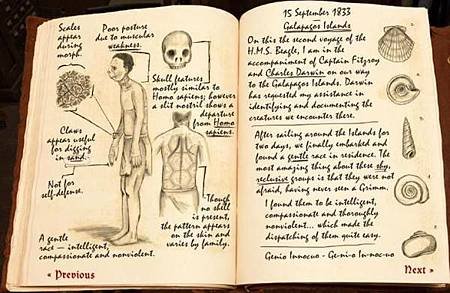 Scales
appear
during
morph.
Poor posture
due to muscular
weakness.
Skull features
mostly similar to
Homo sapiens; however
a slit nostril shows a
departure
from Homo
sapiens.
Claws
appear useful
for digging
in sand.
Not for
self-defense.
Though
no shell
is present,
the pattern appears
on the skin and
varies by family.
A gentle
race – intelligent,
compassionate and nonviolent.
« Previous
15 September 1833
Galapagos Islands
On this the second voyage of the
H.M.S. Beagle, I am in the
accompaniment of Captain Fitzroy
and Charles Darwin on our way
to the Galapagos Islands. Darwin
has requested my assistance in
identifying and documenting the
creatures we encounter there.
After sailing around the Islands for
two days, we finally embarked and
found a gentle race in residence. The
most amazing thing about these shy,
reclusive groups is that they were not
afraid, having never seen a Grimm.
I found them to be intelligent,
compassionate and thoroughly
nonviolent... which made the
dispatching of them quite easy.
Genio Innocuo - Ge-ni-o In-no-cu-o
Next »